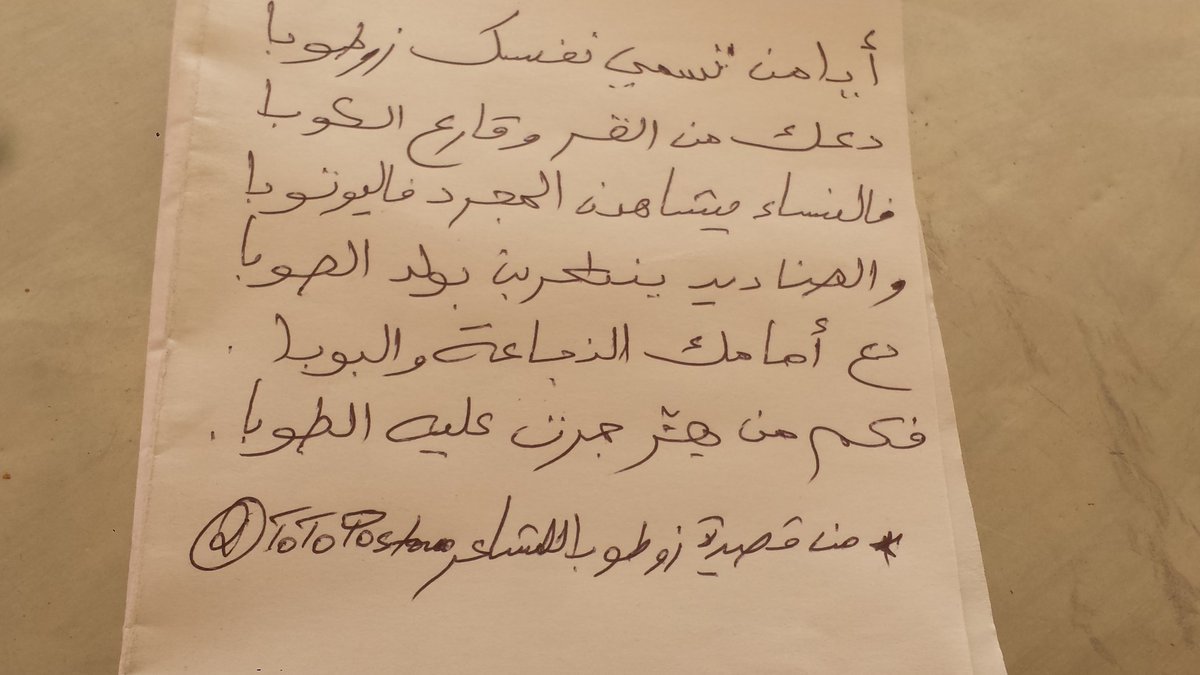 أيا من تسمي نفسك زوطوبا
دعك من القر وقارع الكوبا
فالنساء يشاهدن المجرد فاليوتوبا
والصناديد ينتحرن بولد الصوبا
دع أمامك الذجاعة والبوبا.
فكم من هيثر جرت عليه الطوبا.
* من قصيدة زوطوبا للشاعر @ToTo